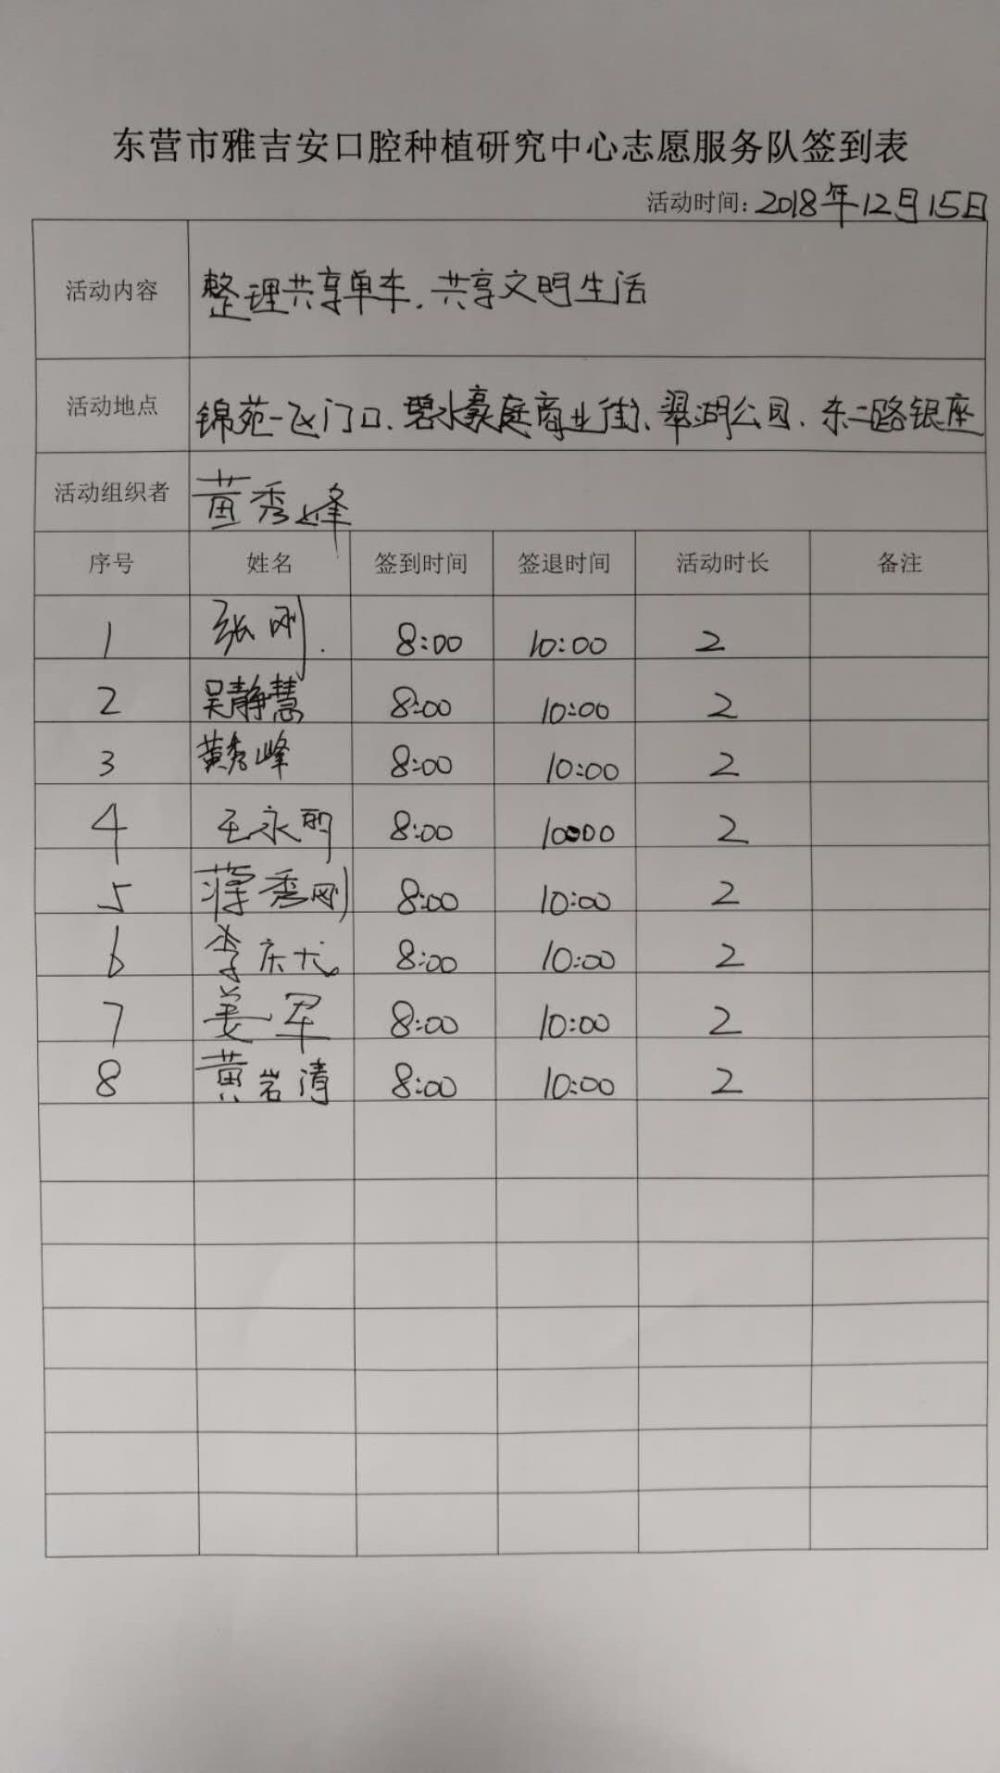 东营市雅吉安口腔种植研究中心志愿服务队签到表
活动时间:2018年12月15日
活动内容 整理共享单车.共享文明生活
活动地点 锦苑一区门口、碧水豪庭商业街、翠湖公园、东二路银座
活动组织者 黄秀峰
序号 姓名 签到时间 签退时间 活动时长 备注
1 张刚. 8:00 10:00 2
2 吴静慧 8:00 10:00 2
3 黄秀峰 8:00 10:00 2
4 王永 8:00 10:00 2
5 秀刚 8:00 10:00 2
6 李庆 8:00 10:00 2
7 姜军 8:00 10:00 2
8 黄岩清 8:00 10:00 2